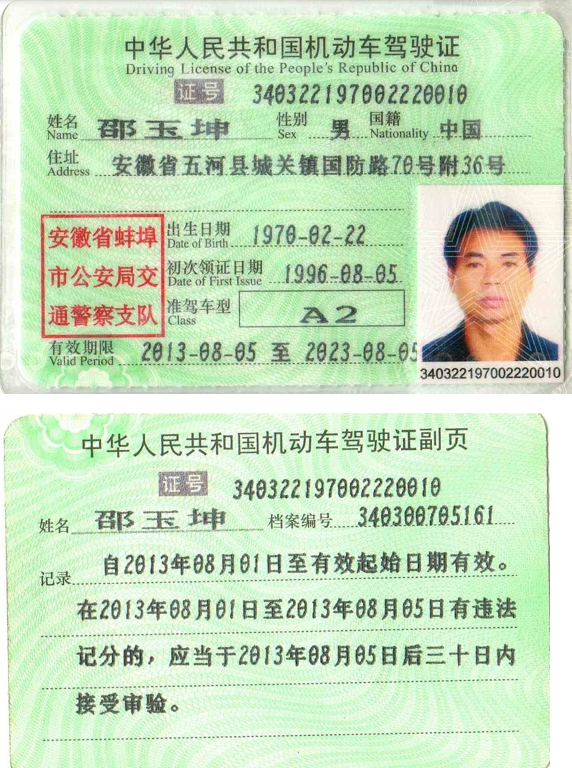 中华人民共和国机动车驾驶证
Driving License of the People's Republic of China
证号 340322197002220010
姓名 邵玉坤 性别 男 国籍 中国
Name Sex Nationality
住址 安徽省五河县城关镇国防路70号附36号
Address
安徽省蚌埠
市公安局交
通警察支队
出生日期 1970-02-22
Date of Birth
初次领证日期 1996-08-05
Date of First Issue
准驾车型 A2
Class
有效期限 2013-08-05 至 2023-08-05
Valid Period
340322197002220010
中华人民共和国机动车驾驶证副页
证号 340322197002220010
姓名 邵玉坤 档案编号 340300705161
记录 自2013年08月01日至有效起始日期有效。
在2013年08月01日至2013年08月05日有违法
记分的，应当于2013年08月05日后三十日内
接受审验。